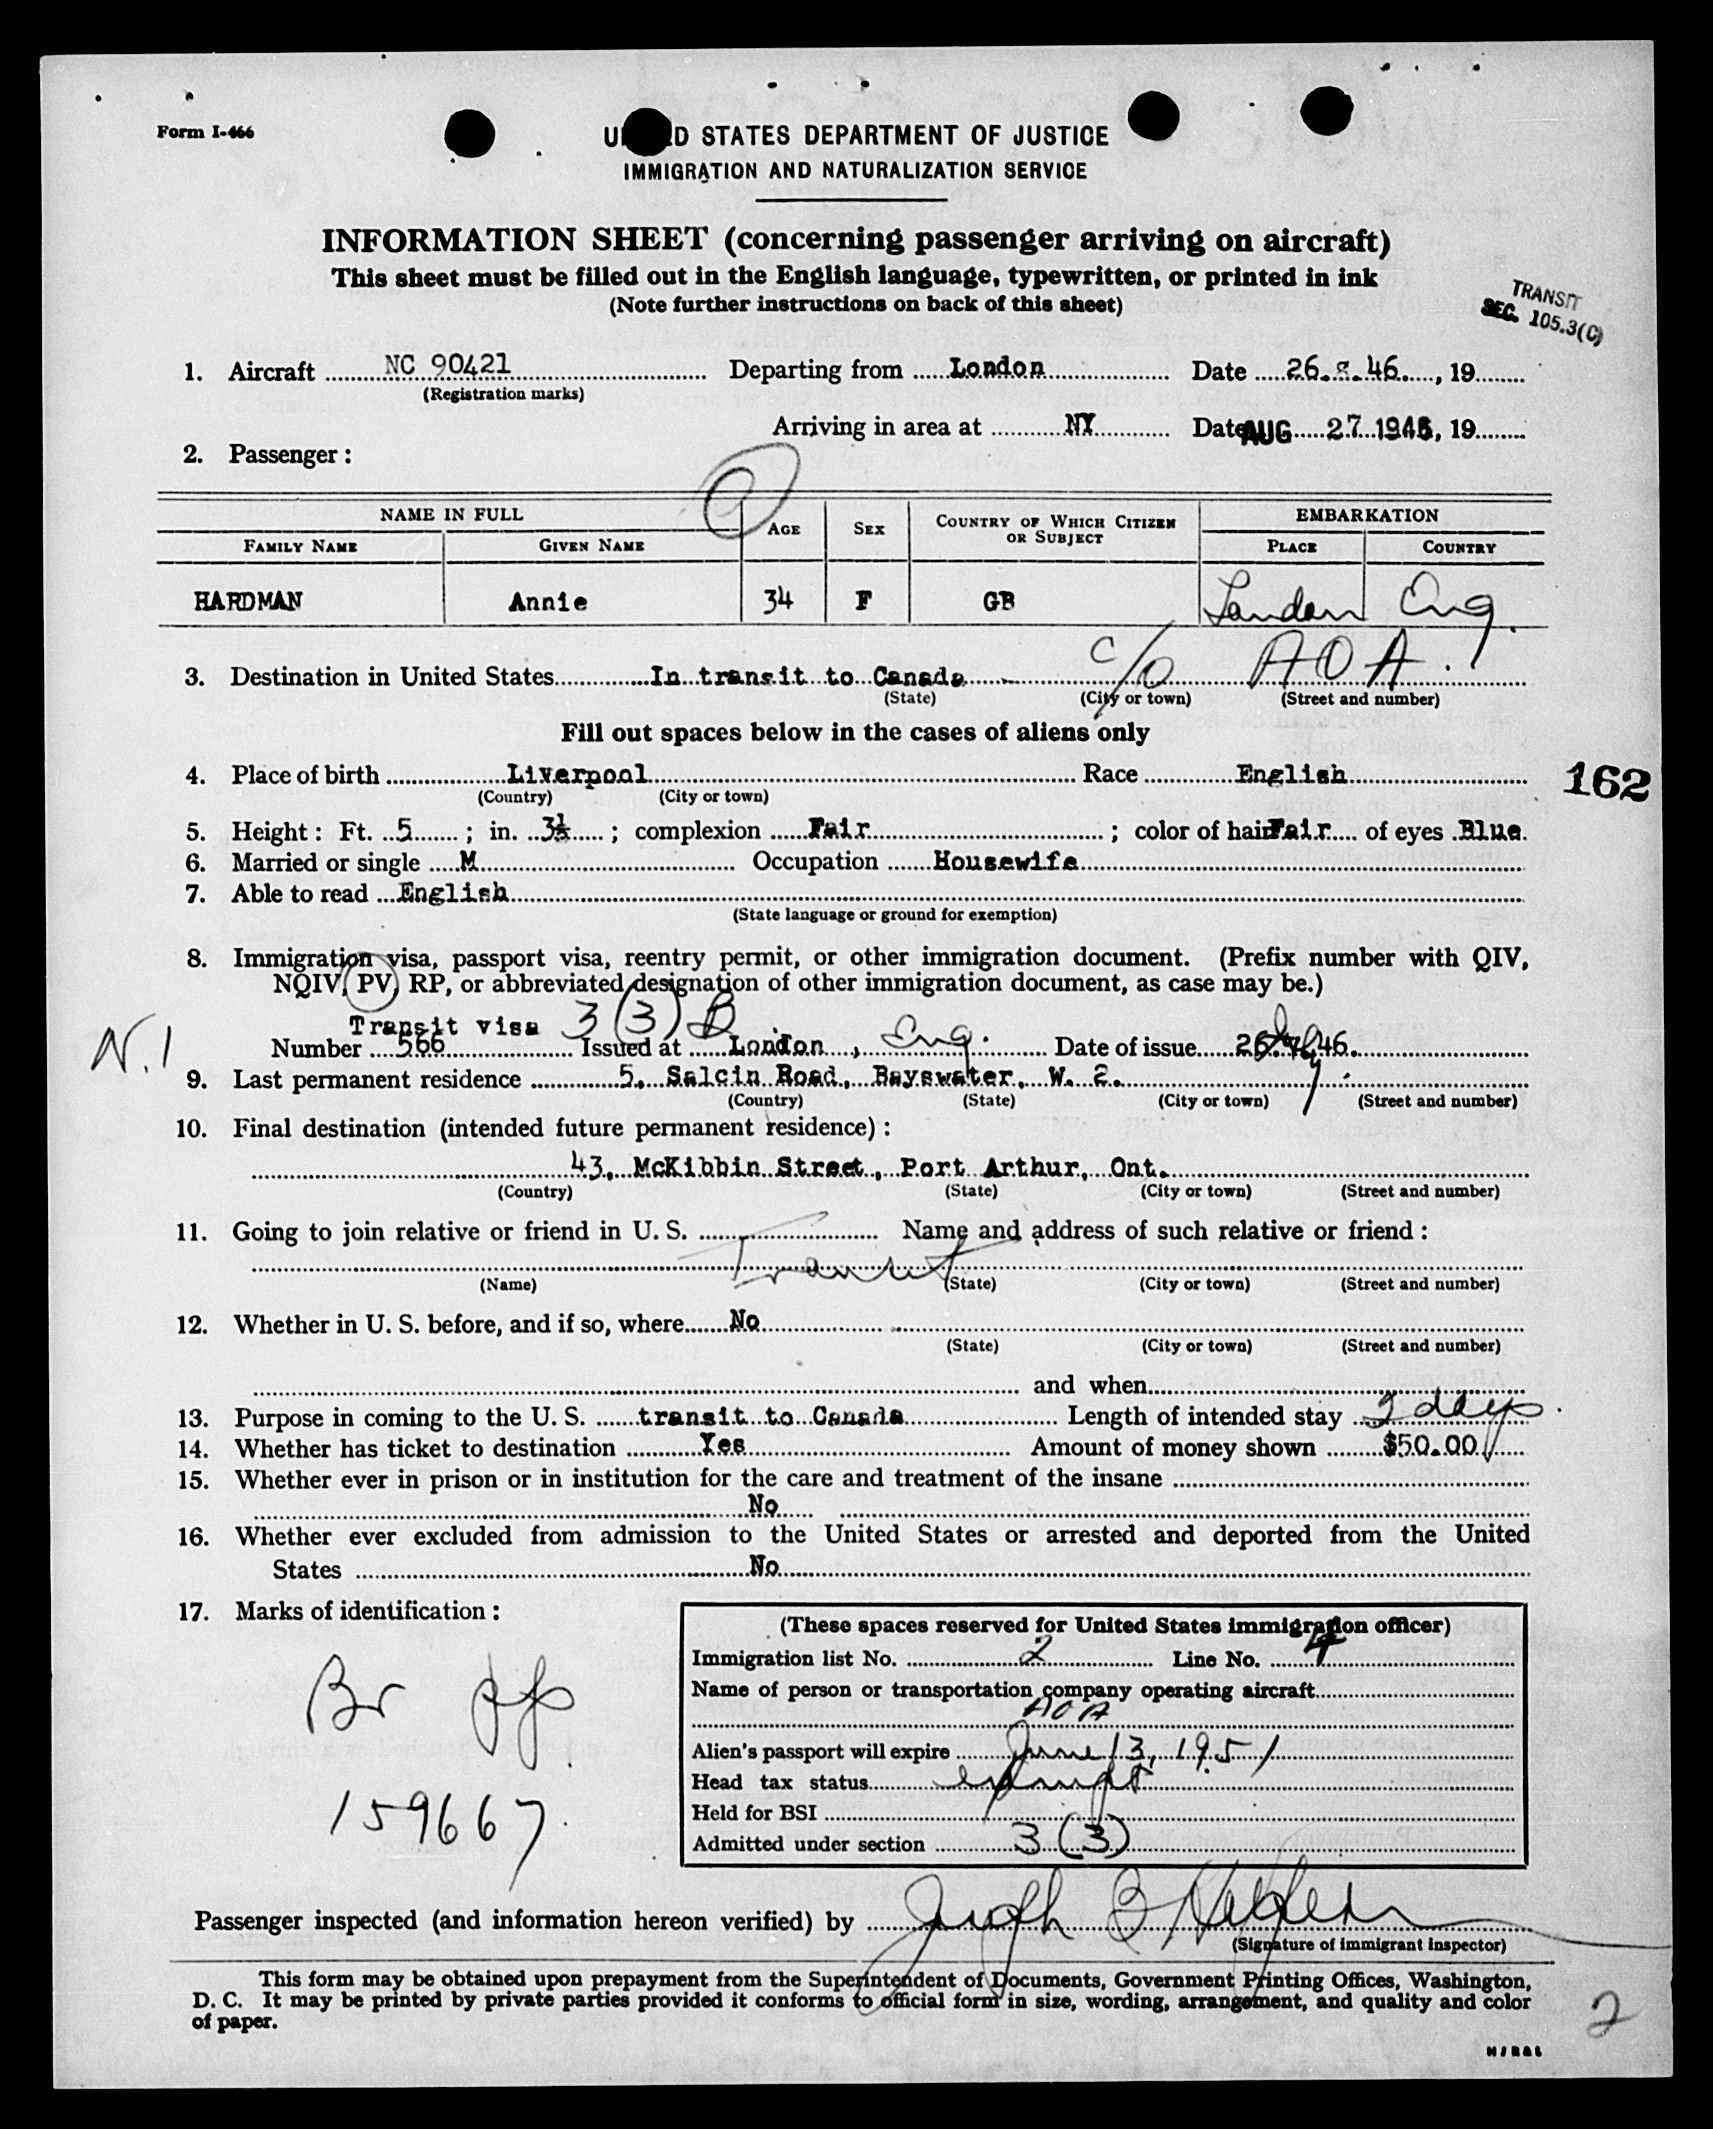 Form I-466
UNITED STATES DEPARTMENT OF JUSTICE
IMMIGRATION AND NATURALIZATION SERVICE
INFORMATION SHEET (concerning passenger arriving on aircraft)
This sheet must be filled out in the English language, typewritten, or printed in ink
(Note further instructions on back of this sheet)
TRANSIT
SEC. 105.3(C)
1. Aircraft NC 90421 Departing from London Date 26.8.46., 19
(Registration marks)
Arriving in area at NY Date AUG 27 1946, 19
2. Passenger:
NAME IN FULL AGE SEX COUNTRY OF WHICH CITIZEN OR SUBJECT EMBARKATION
FAMILY NAME GIVEN NAME PLACE COUNTRY
HARDMAN Annie 34 F GB London Eng.
3. Destination in United States In transit to Canada c/o AOA.
(State) (City or town) (Street and number)
Fill out spaces below in the cases of aliens only
4. Place of birth Liverpool Race English
(Country) (City or town)
162
5. Height: Ft. 5; in. 3½; complexion Fair; color of hair Fair of eyes Blue.
6. Married or single M Occupation Housewife
7. Able to read English
(State language or ground for exemption)
8. Immigration visa, passport visa, reentry permit, or other immigration document. (Prefix number with QIV,
NQIV, PV, RP, or abbreviated designation of other immigration document, as case may be.)
Transit visa 3(3)B
N.1
Number 566 Issued at London, Eng. Date of issue 46.
9. Last permanent residence 5, Salcin Road, Bayswater, W. 2.
(Country) (State) (City or town) (Street and number)
10. Final destination (intended future permanent residence):
43, McKibbin Street, Port Arthur, Ont.
(Country) (State) (City or town) (Street and number)
11. Going to join relative or friend in U. S. Name and address of such relative or friend:
Transit
(Name) (State) (City or town) (Street and number)
12. Whether in U. S. before, and if so, where No
(State) (City or town) (Street and number)
and when
13. Purpose in coming to the U. S. transit to Canada Length of intended stay 2 days.
14. Whether has ticket to destination Yes Amount of money shown $50.00
15. Whether ever in prison or in institution for the care and treatment of the insane
No
16. Whether ever excluded from admission to the United States or arrested and deported from the United
States No
17. Marks of identification:
Br pp.
159667.
(These spaces reserved for United States immigration officer)
Immigration list No. 2 Line No. 4
Name of person or transportation company operating aircraft
AOA
Alien's passport will expire June 13, 1951
Head tax status exempt
Held for BSI
Admitted under section 3(3)
Passenger inspected (and information hereon verified) by Joseph B
(Signature of immigrant inspector)
This form may be obtained upon prepayment from the Superintendent of Documents, Government Printing Offices, Washington,
D. C. It may be printed by private parties provided it conforms to official form in size, wording, arrangement, and quality and color
of paper.
2